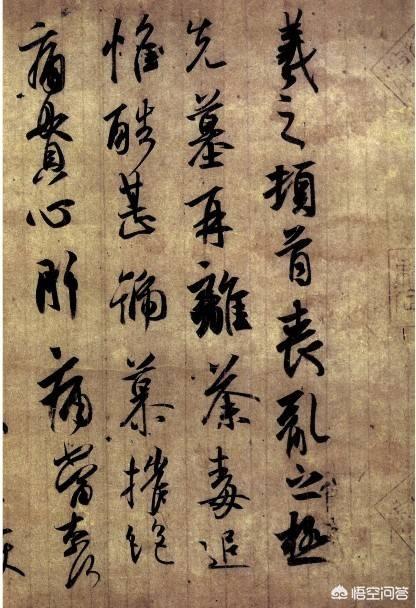 羲之頓首喪亂之極
先墓再離荼毒追
惟酷甚號慕摧絕
痛貫心肝痛當奈
悟空问答